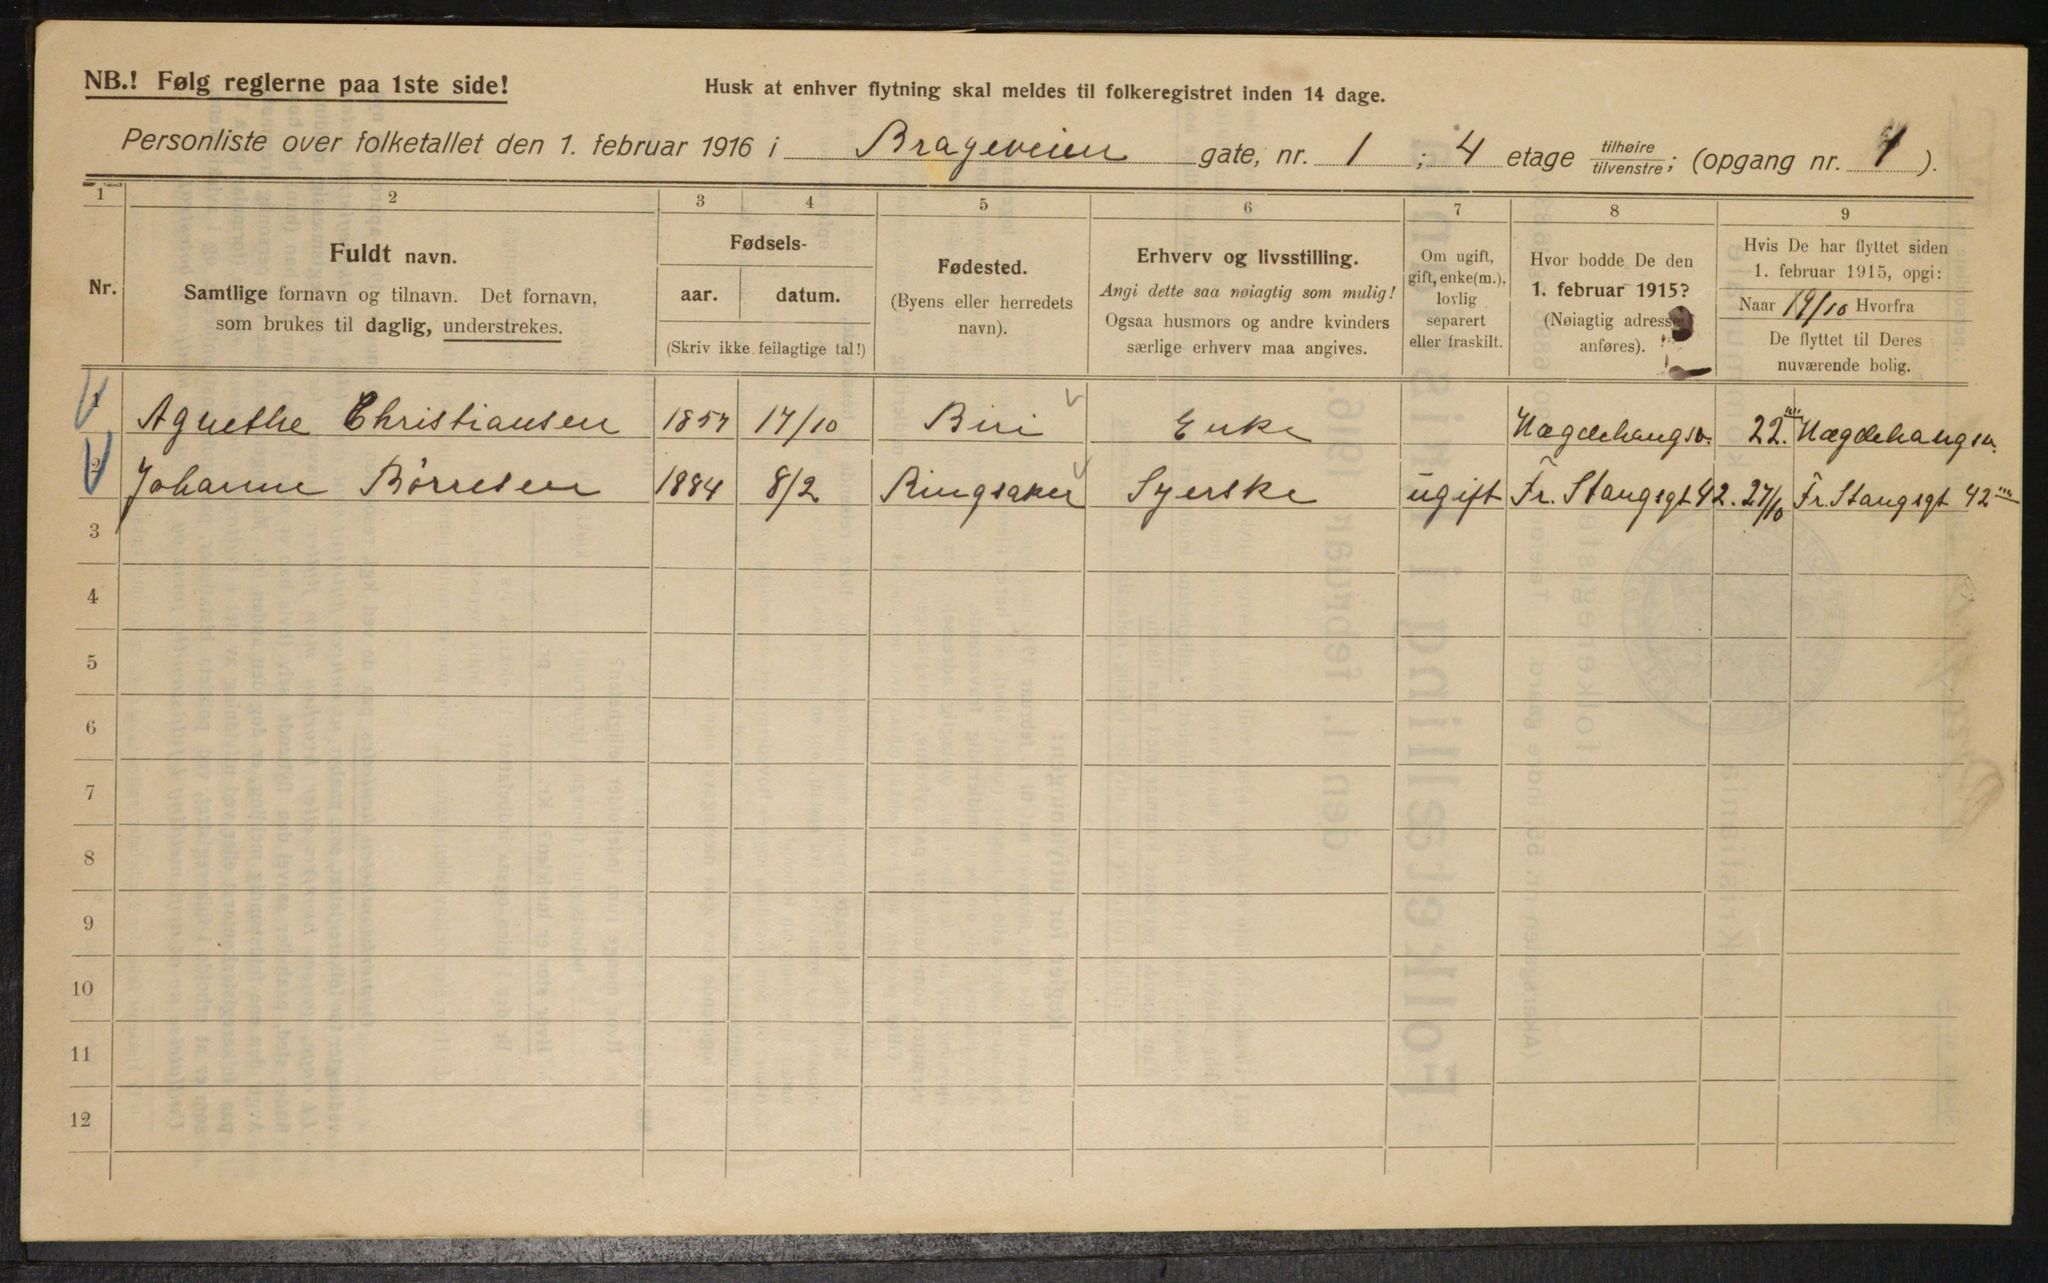 NB.! Følg reglerne paa 1ste side!
Husk at enhver flytning skal meldes til folkeregistret inden 14 dage.
Personliste over folketallet den 1. februar 1916 i Brageveien gate, nr. 1 ; 4 etage tilhøire/tilvenstre; (opgang nr. 1 ).
1 2 3 4 5 6 7 8 9
Nr.
Fuldt navn.
Samtlige fornavn og tilnavn. Det fornavn,
som brukes til daglig, understrekes.
Fødsels-
aar. datum.
(Skriv ikke feilagtige tal!)
Fødested.
(Byens eller herredets
navn).
Erhverv og livsstilling.
Angi dette saa nøiagtig som mulig!
Ogsaa husmors og andre kvinders
særlige erhverv maa angives.
Om ugift,
gift, enke(m.),
lovlig
separert
eller fraskilt.
Hvor bodde De den
1. februar 1915?
(Nøiagtig adresse
anføres).
Hvis De har flyttet siden
1. februar 1915, opgi:
Naar 19/10 Hvorfra
De flyttet til Deres
nuværende bolig.
1 Agnethe Christiansen 1857 17/10 Biri Enke Hægdehaugsv. 22. Hægdehaugsv.
2 Johanne Børresen 1884 8/2 Ringsaker Syerske ugift Fr. Stangsgt 42. 27/10 Fr. Stangsgt 42
3
4
5
6
7
8
9
10
11
12